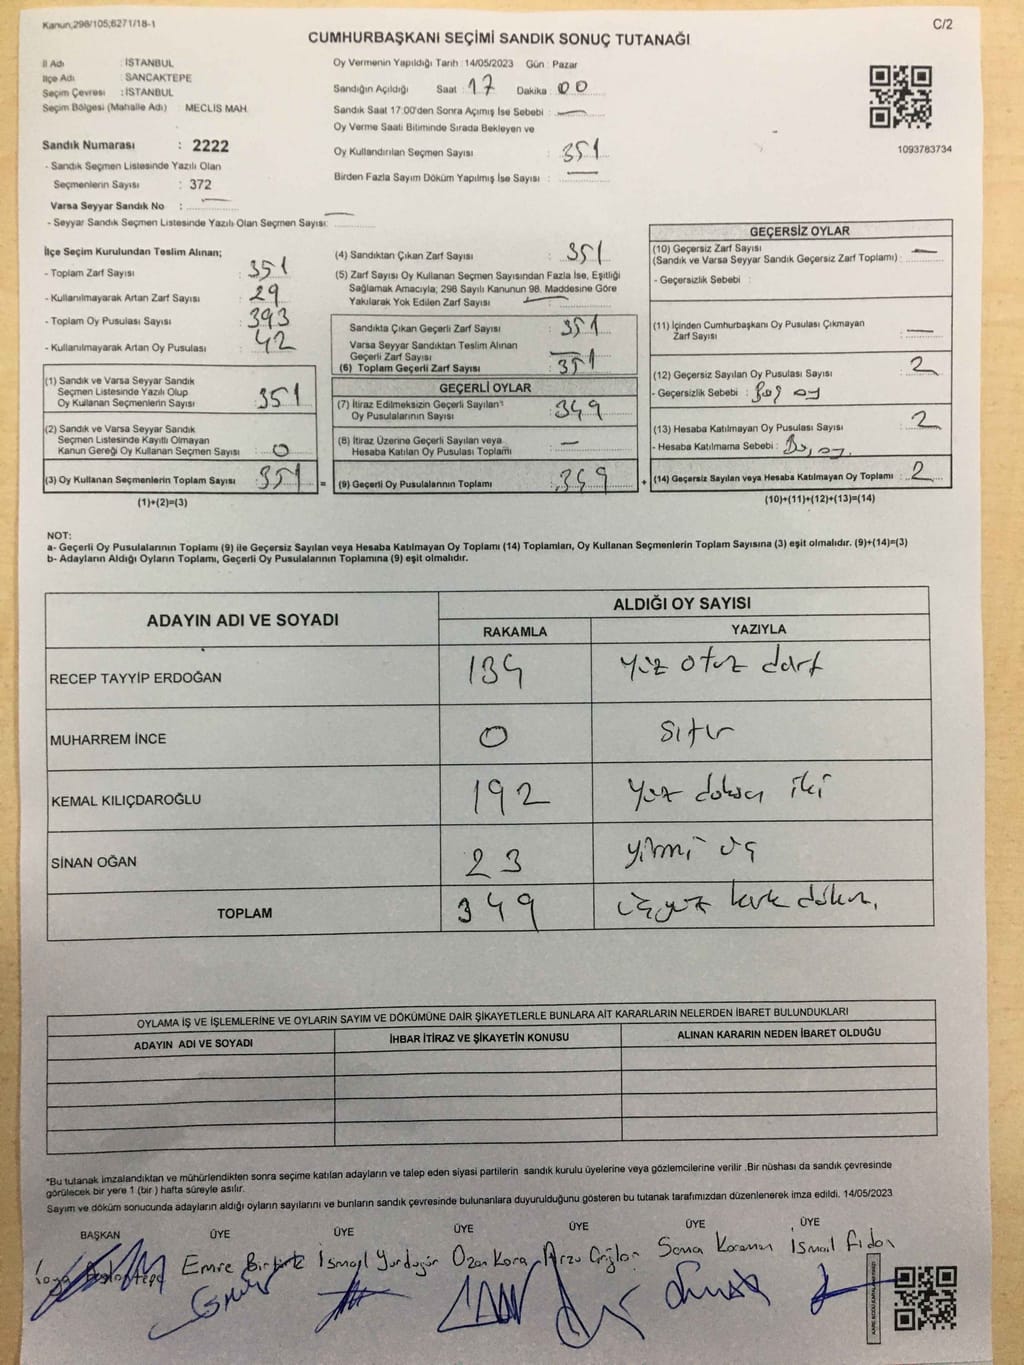 Kanun,298/105;6271/18-1
C/2
CUMHURBAŞKANI SEÇİMİ SANDIK SONUÇ TUTANAĞI
İl Adı : İSTANBUL
İlçe Adı : SANCAKTEPE
Seçim Çevresi : İSTANBUL
Seçim Bölgesi (Mahalle Adı) : MECLİS MAH.
Sandık Numarası : 2222
- Sandık Seçmen Listesinde Yazılı Olan
Seçmenlerin Sayısı : 372
Varsa Seyyar Sandık No : —
- Seyyar Sandık Seçmen Listesinde Yazılı Olan Seçmen Sayısı: —
Oy Vermenin Yapıldığı Tarih : 14/05/2023 Gün : Pazar
Sandığın Açıldığı Saat : 17 Dakika : 00
Sandık Saat 17:00'den Sonra Açımış İse Sebebi : —
Oy Verme Saati Bitiminde Sırada Bekleyen ve
Oy Kullandırılan Seçmen Sayısı : 351
Birden Fazla Sayım Döküm Yapılmış İse Sayısı : —
1093783734
İlçe Seçim Kurulundan Teslim Alınan;
- Toplam Zarf Sayısı : 351
- Kullanılmayarak Artan Zarf Sayısı : 29
- Toplam Oy Pusulası Sayısı : 393
- Kullanılmayarak Artan Oy Pusulası : 42
(1) Sandık ve Varsa Seyyar Sandık
Seçmen Listesinde Yazılı Olup
Oy Kullanan Seçmenlerin Sayısı : 351
(2) Sandık ve Varsa Seyyar Sandık
Seçmen Listesinde Kayıtlı Olmayan
Kanun Gereği Oy Kullanan Seçmen Sayısı : 0
(3) Oy Kullanan Seçmenlerin Toplam Sayısı : 351
(1)+(2)=(3)
(4) Sandıktan Çıkan Zarf Sayısı : 351
(5) Zarf Sayısı Oy Kullanan Seçmen Sayısından Fazla İse, Eşitliği
Sağlamak Amacıyla; 298 Sayılı Kanunun 98. Maddesine Göre
Yakılarak Yok Edilen Zarf Sayısı : —
Sandıkta Çıkan Geçerli Zarf Sayısı : 351
Varsa Seyyar Sandıktan Teslim Alınan
Geçerli Zarf Sayısı : —
(6) Toplam Geçerli Zarf Sayısı : 351
GEÇERLİ OYLAR
(7) İtiraz Edilmeksizin Geçerli Sayılan
Oy Pusulalarının Sayısı : 349
(8) İtiraz Üzerine Geçerli Sayılan veya
Hesaba Katılan Oy Pusulası Toplamı : —
= (9) Geçerli Oy Pusulalarının Toplamı : 349 +
GEÇERSİZ OYLAR
(10) Geçersiz Zarf Sayısı
(Sandık ve Varsa Seyyar Sandık Geçersiz Zarf Toplamı) : —
- Geçersizlik Sebebi :
(11) İçinden Cumhurbaşkanı Oy Pusulası Çıkmayan
Zarf Sayısı : —
(12) Geçersiz Sayılan Oy Pusulası Sayısı : 2
- Geçersizlik Sebebi : Boş oy
(13) Hesaba Katılmayan Oy Pusulası Sayısı : 2
- Hesaba Katılmama Sebebi : Boş oy.
(14) Geçersiz Sayılan veya Hesaba Katılmayan Oy Toplamı : 2
(10)+(11)+(12)+(13)=(14)
NOT:
a- Geçerli Oy Pusulalarının Toplamı (9) ile Geçersiz Sayılan veya Hesaba Katılmayan Oy Toplamı (14) Toplamları, Oy Kullanan Seçmenlerin Toplam Sayısına (3) eşit olmalıdır. (9)+(14)=(3)
b- Adayların Aldığı Oyların Toplamı, Geçerli Oy Pusulalarının Toplamına (9) eşit olmalıdır.
ADAYIN ADI VE SOYADI
ALDIĞI OY SAYISI
RAKAMLA YAZIYLA
RECEP TAYYİP ERDOĞAN 134 Yüz otuz dört
MUHARREM İNCE 0 Sıfır
KEMAL KILIÇDAROĞLU 192 Yüz doksan iki
SİNAN OĞAN 23 yirmi üç
TOPLAM 349 üçyüz kırk dokuz
OYLAMA İŞ VE İŞLEMLERİNE VE OYLARIN SAYIM VE DÖKÜMÜNE DAİR ŞİKAYETLERLE BUNLARA AİT KARARLARIN NELERDEN İBARET BULUNDUKLARI
ADAYIN ADI VE SOYADI İHBAR İTİRAZ VE ŞİKAYETİN KONUSU ALINAN KARARIN NEDEN İBARET OLDUĞU
*Bu tutanak imzalandıktan ve mühürlendikten sonra seçime katılan adayların ve talep eden siyasi partilerin sandık kurulu üyelerine veya gözlemcilerine verilir .Bir nüshası da sandık çevresinde
görülecek bir yere 1 (bir ) hafta süreyle asılır.
Sayım ve döküm sonucunda adayların aldığı oyların sayılarını ve bunların sandık çevresinde bulunanlara duyurulduğunu gösteren bu tutanak tarafımızdan düzenlenerek imza edildi. 14/05/2023
BAŞKAN ÜYE ÜYE ÜYE ÜYE ÜYE ÜYE
Emre İsmail Yurdugür Ozan Kara Arzu Sona Karaman İsmail Fidan